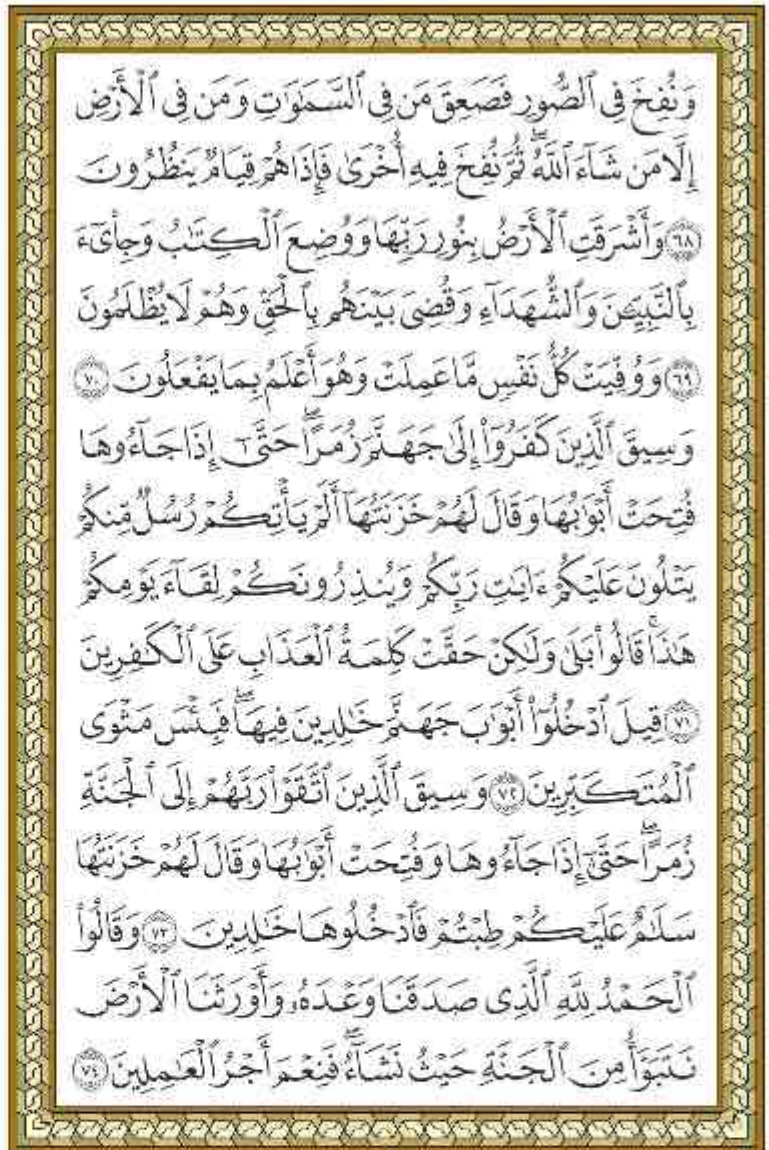 وَنُفِخَ فِي ٱلصُّورِ فَصَعِقَ مَن فِي ٱلسَّمَٰوَٰتِ وَمَن فِي ٱلْأَرْضِ
إِلَّا مَن شَآءَ ٱللَّهُۖ ثُمَّ نُفِخَ فِيهِ أُخْرَىٰ فَإِذَا هُمْ قِيَامٌ يَنظُرُونَ
٦٨ وَأَشْرَقَتِ ٱلْأَرْضُ بِنُورِ رَبِّهَا وَوُضِعَ ٱلْكِتَٰبُ وَجِا۟يٓءَ
بِٱلنَّبِيِّـۧنَ وَٱلشُّهَدَآءِ وَقُضِيَ بَيْنَهُم بِٱلْحَقِّ وَهُمْ لَا يُظْلَمُونَ
٦٩ وَوُفِّيَتْ كُلُّ نَفْسٍ مَّا عَمِلَتْ وَهُوَ أَعْلَمُ بِمَا يَفْعَلُونَ ٧٠
وَسِيقَ ٱلَّذِينَ كَفَرُوٓا۟ إِلَىٰ جَهَنَّمَ زُمَرًاۖ حَتَّىٰٓ إِذَا جَآءُوهَا
فُتِحَتْ أَبْوَٰبُهَا وَقَالَ لَهُمْ خَزَنَتُهَآ أَلَمْ يَأْتِكُمْ رُسُلٌ مِّنكُمْ
يَتْلُونَ عَلَيْكُمْ ءَايَٰتِ رَبِّكُمْ وَيُنذِرُونَكُمْ لِقَآءَ يَوْمِكُمْ
هَٰذَاۚ قَالُوا۟ بَلَىٰ وَلَٰكِنْ حَقَّتْ كَلِمَةُ ٱلْعَذَابِ عَلَى ٱلْكَٰفِرِينَ
٧١ قِيلَ ٱدْخُلُوٓا۟ أَبْوَٰبَ جَهَنَّمَ خَٰلِدِينَ فِيهَاۖ فَبِئْسَ مَثْوَى
ٱلْمُتَكَبِّرِينَ ٧٢ وَسِيقَ ٱلَّذِينَ ٱتَّقَوْا۟ رَبَّهُمْ إِلَى ٱلْجَنَّةِ
زُمَرًاۖ حَتَّىٰٓ إِذَا جَآءُوهَا وَفُتِحَتْ أَبْوَٰبُهَا وَقَالَ لَهُمْ خَزَنَتُهَا
سَلَٰمٌ عَلَيْكُمْ طِبْتُمْ فَٱدْخُلُوهَا خَٰلِدِينَ ٧٣ وَقَالُوا۟
ٱلْحَمْدُ لِلَّهِ ٱلَّذِي صَدَقَنَا وَعْدَهُۥ وَأَوْرَثَنَا ٱلْأَرْضَ
نَتَبَوَّأُ مِنَ ٱلْجَنَّةِ حَيْثُ نَشَآءُۖ فَنِعْمَ أَجْرُ ٱلْعَٰمِلِينَ ٧٤